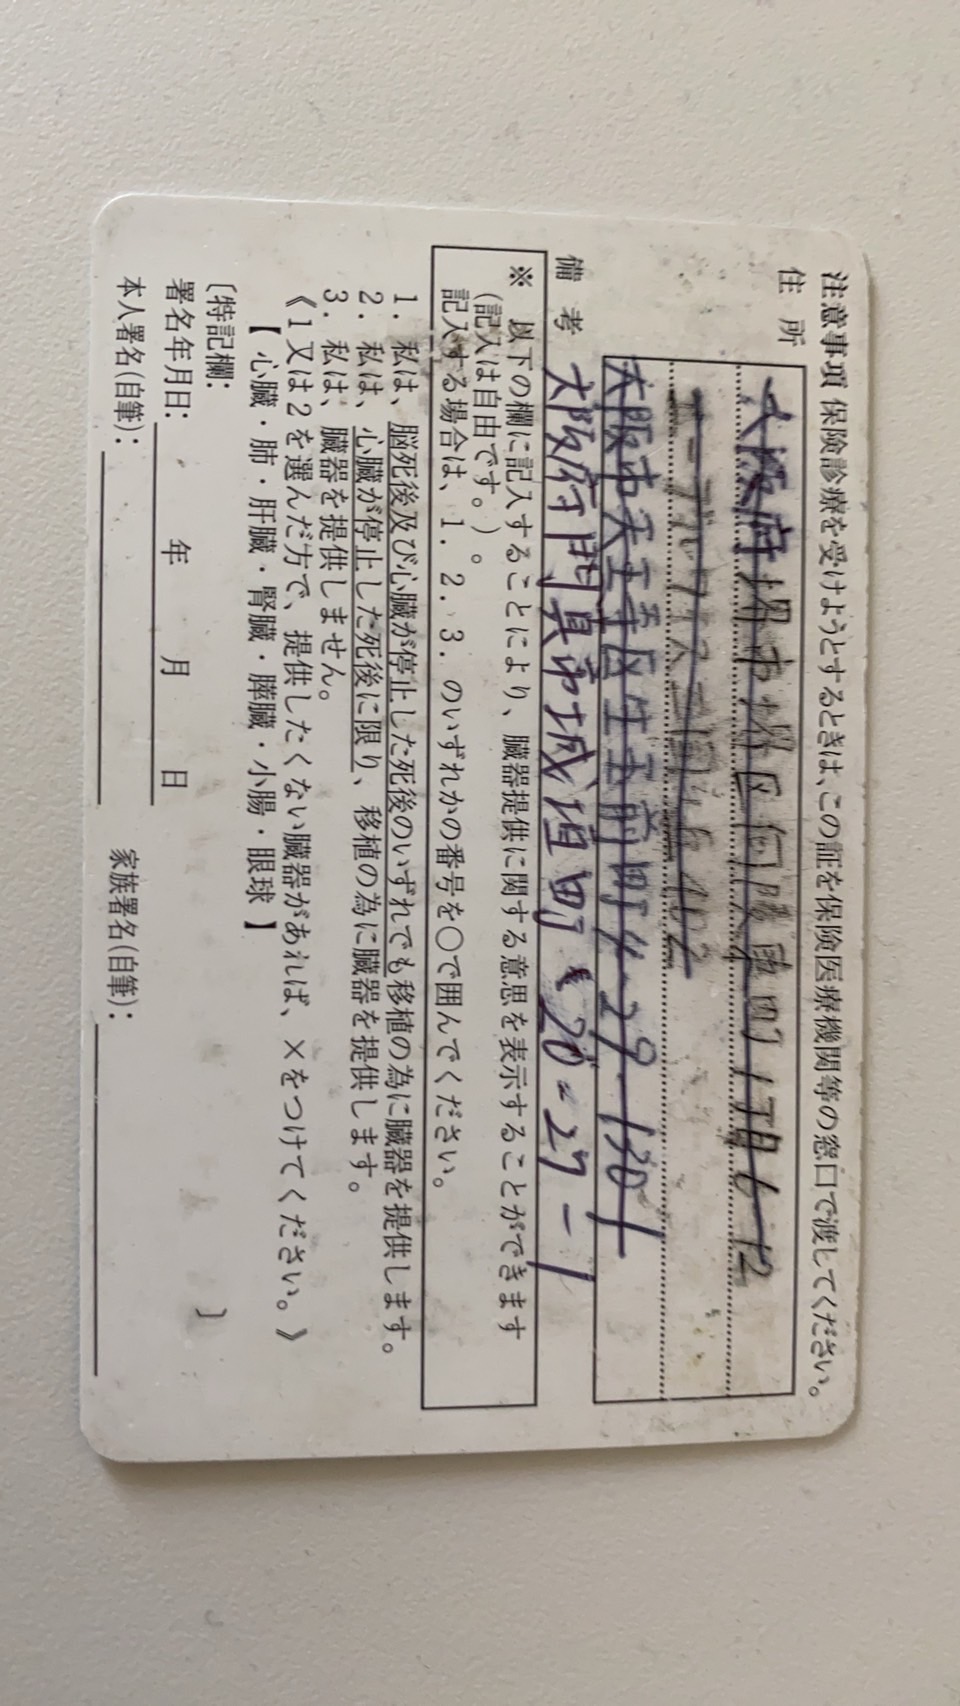 注意事項 保険診療を受けようとするときは、この証を保険医療機関等の窓口で渡してください。
住所
大阪府堺市堺区向陽東町1丁目6-12
402
大阪市天王寺区生玉前町4-29-1201
備考 大阪府門真市城垣町 20-27-1
※ 以下の欄に記入することにより、臓器提供に関する意思を表示することができます
(記入は自由です。)。
記入する場合は、1. 2. 3. のいずれかの番号を○で囲んでください。
1. 私は、脳死後及び心臓が停止した死後のいずれでも移植の為に臓器を提供します。
2. 私は、心臓が停止した死後に限り、移植の為に臓器を提供します。
3. 私は、臓器を提供しません。
《1又は2を選んだ方で、提供したくない臓器があれば、×をつけてください。》
【 心臓・肺・肝臓・腎臓・膵臓・小腸・眼球 】
〔特記欄: 〕
署名年月日: 年 月 日
本人署名(自筆): 家族署名(自筆):